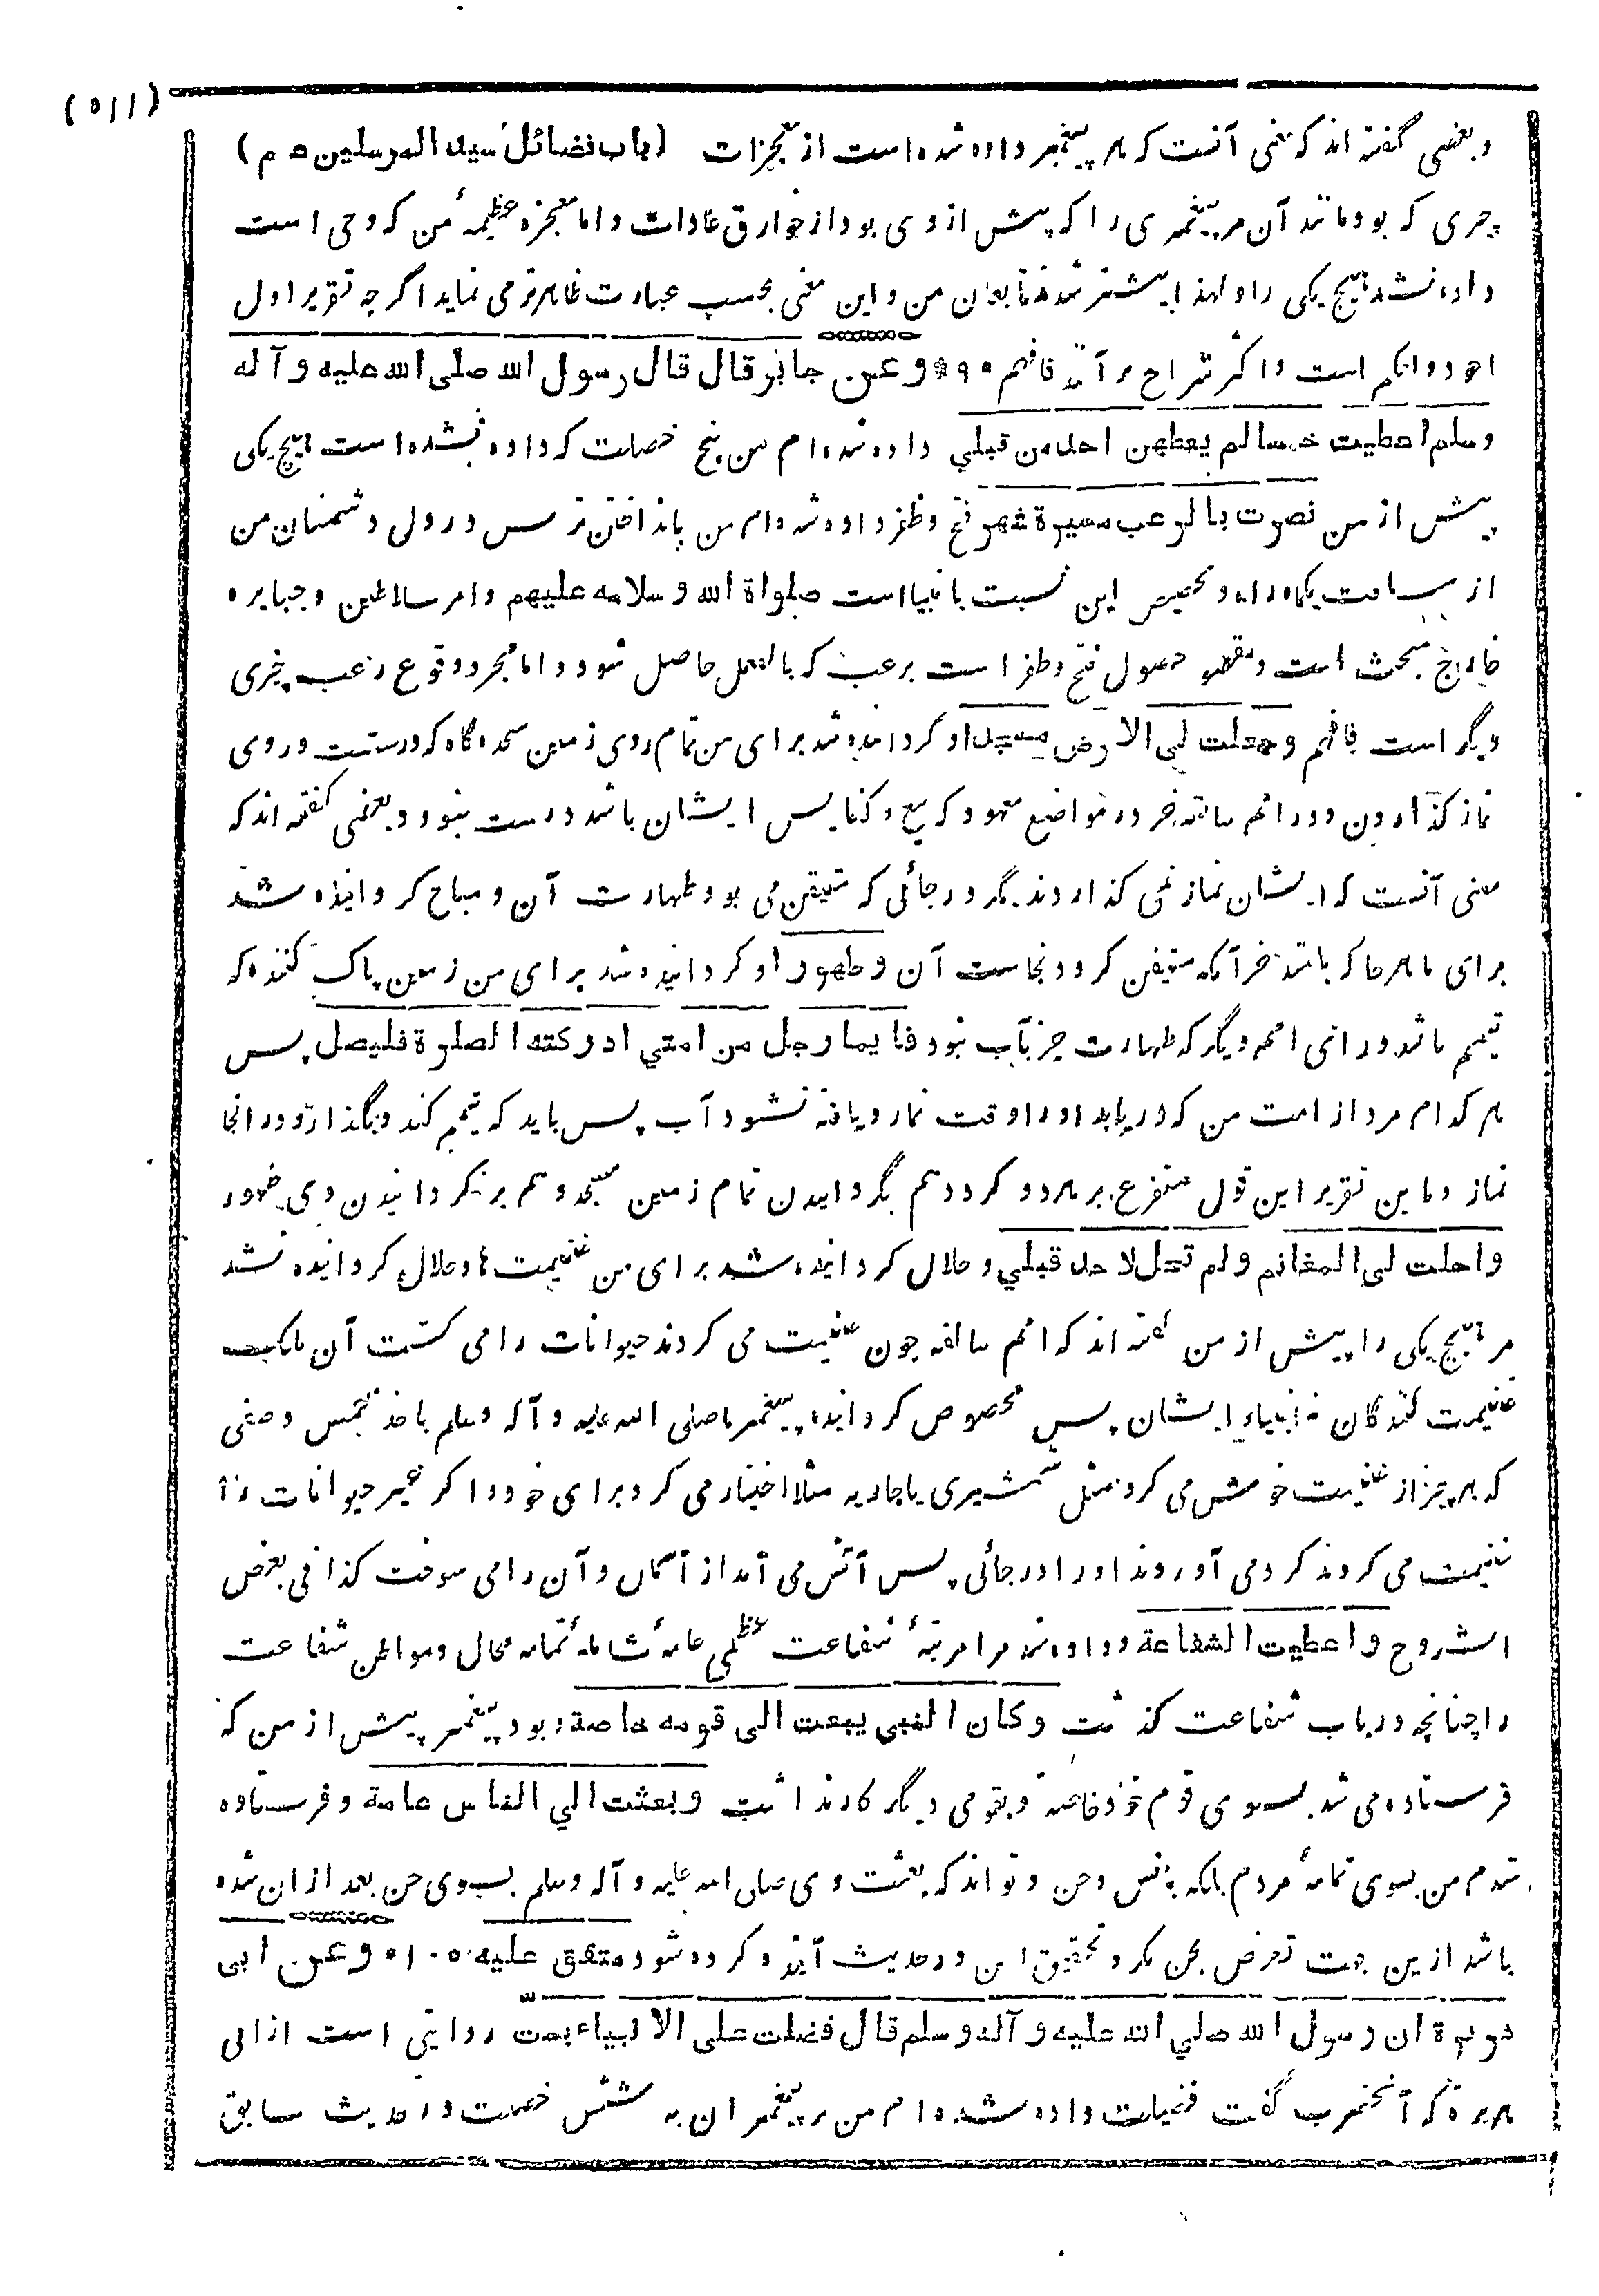 (٥١١)
و بعضی گفته اند که معنی آنست که هر پیغمبر داده شده است از معجزات (باب فضائل سید المرسلین ص م)
چیزی که بود مانند آن مر پیغمبری را که پیش از وی بود از خوارق عادات و اما معجزه عظیمهٔ من که وحی است
داده نشد هیچ یکی را و لهذا بیشتر شدند تابعان من و این معنی بحسب عبارت ظاهرتر می نماید اگرچه تقریر اول
اجود و احکم است و اکثر شراح بر آنند فافهم ٩٥ * وعن جابر قال قال رسول الله صلی الله علیه و آله
وسلم اعطیت خمسا لم یعطهن احد من قبلي داده شده ام من پنج خصلت که داده نشده است هیچ یکی
پیش از من نصرت بالرعب مسیرة شهر فتح و ظفر داده شده ام من باند اختن ترس در دلی دشمنان من
از مسافت یکماه راه و تخصیص این نسبت بانبیا است صلواة الله و سلامه علیهم و امر سلاطین و جبابره
خارج مبحث است و مقصود حصول فتح و ظفر است برعب که بالفعل حاصل شود و اما مجرد وقوع رعب چیزی
دیگر است فافهم وجعلت لي الارض مسجدا و گردانیده شد برای من تمام روی زمین سجده گاه که درستست در وی
نماز گذاردن و در امم سابقه جز در مواضع معهود که بیع و کنایس ایشان باشد درست نبود و بعضی گفته اند که
معنی آنست که ایشان نماز نمی گذاردند مگر در جائی که متیقن می بود طهارت آن و مباح گردانیده شد
برای ما هر جا که باشد جز آنکه متیقن گردد نجاست آن وطهورا و گردانیده شد برای من زمین پاک کننده که
تیمم باشد و رای امم دیگر که طهارت جز بآب نبود فایما رجل من امتي ادرکته الصلوة فلیصل پس
هر کدام مرد از امت من که دریابد او را وقت نماز و یافته نشود آب پس باید که تیمم کند و بگذارد در انجا
نماز و باین تقریر این قول متفرع بر هر دو گردد هم بگردانیدن تمام زمین مسجد و هم بر گردانیدن وی طهور
واحلت لي المغانم ولم تحل لاحد قبلي و حلال گردانیده شد برای من غنیمت ها و حلال گردانیده نشد
مر هیچ یکی را پیش از من گفته اند که امم سالفه چون غنیمت می کردند حیوانات را می گشت آن ملک
غنیمت کنندگان نه انبیاء ایشان پس مخصوص گردانیده پیغمبر ما صلی الله علیه و آله وسلم باخذ خمس و صفی
که هر چیز از غنیمت خوش می کرد مثل شمشیری یا جاریه مثلا اختیار می کرد برای خود و اگر غیر حیوانات را
غنیمت می کردند گرد می آوردند او را در جائی پس آتش می آمد از آسمان و آن را می سوخت کذا فی بعض
الشروح واعطیت الشفاعة و داده شد مرا مرتبهٔ شفاعت عظمی عامهٔ شاملهٔ تمامه محال و مواطن شفاعت
را چنانچه در باب شفاعت گذشت وکان النبي یبعث الی قومه خاصة و بود پیغمبر پیش از من که
فرستاده می شد بسوی قوم خود خاصة و بقومی دیگر کار نداشت وبعثت الي الناس عامة و فرستاده
شدم من بسوی تمامهٔ مردم بلکه بانس و جن و تواند که بعثت وی صلی الله علیه و آله وسلم بسوی جن بعد از ان شده
باشد ازین جهت تعرض بجن نکرد و تحقیق این در حدیث آینده کرده شود متفق علیه ١٠٥ وعن ابی
هریرة ان رسول الله صلي الله علیه و آله وسلم قال فضلت علی الانبیاء بست روایتی است از ابی
هریرة که آنحضرت گفت فضیلت داده شده ام من بر پیغمبران به شش خصلت و در حدیث سابق